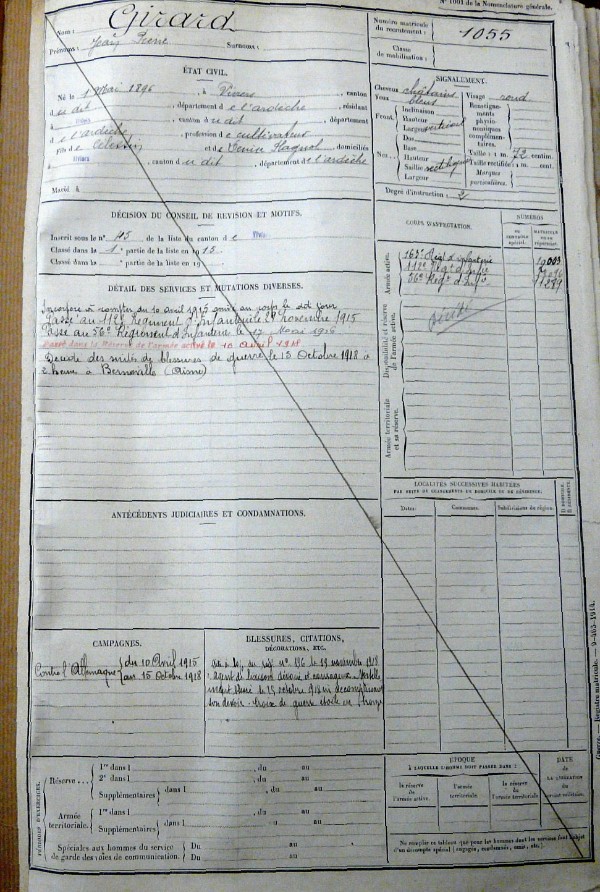 N° 1001 de la Nomenclature générale.
Nom : Girard
Prénoms : Jean Pierre Surnoms :
Numéro matricule du recrutement : 1055
Classe de mobilisation :
ÉTAT CIVIL.
Né le 1 Mai 1895, à Viviers, canton
du dit, département de l'ardèche, résidant
à Viviers, canton du dit, département
de l'ardèche, profession de cultivateur
fils de Celestin et de domiciliés
à Viviers, canton du dit, département de l'ardèche
Marié à
SIGNALEMENT.
Cheveux châtains Visage rond
Yeux bleus
Front. Inclinaison
Hauteur
Largeur
Nez. Base
Hauteur
Saillie
Largeur
Renseignements physionomiques complémentaires.
Taille : 1 m. 72 centim.
Taille rectifiée : 1 m. cent.
Marques particulières.
Degré d'instruction : 2
DÉCISION DU CONSEIL DE RÉVISION ET MOTIFS.
Inscrit sous le n° 45 de la liste du canton de
Classé dans la 1e partie de la liste en 1915
Classé dans la e partie de la liste en 19
DÉTAIL DES SERVICES ET MUTATIONS DIVERSES.
Incorporé à compter du 10 avril 1915 arrivé au corps le dit jour
Passé au 112e Régiment d'Infanterie le novembre 1915
Passé au 56e Régiment d'Infanterie le 17 Mai 1916
Passé dans la Réserve de l'armée active le 10 avril 1918
Décédé des suites de blessures de guerre le 15 Octobre 1918 à
2 heures à Bernoville (Aisne)
CORPS D'AFFECTATION.
NUMÉROS
au contrôle spécial.
matricule ou au répertoire.
Armée active.
163e Régt d'infanterie
112e Régt d'Infie
56e Régt d'Infie 11289
Disponibilité et réserve de l'armée active.
décédé
Armée territoriale et sa réserve.
LOCALITÉS SUCCESSIVES HABITÉES
PAR SUITE DE CHANGEMENTS DE DOMICILE OU DE RÉSIDENCE.
Dates. Communes. Subdivisions de région. D. domicile. R. résidence.
ANTÉCÉDENTS JUDICIAIRES ET CONDAMNATIONS.
CAMPAGNES.
Contre l'Allemagne { du 10 Avril 1915
au 15 Octobre 1918
BLESSURES, CITATIONS,
DÉCORATIONS, ETC.
n° 196 le 19 novembre 1918
agent de liaison dévoué et courageux
le 15 octobre 1918 en accomplissant
son devoir. Croix de guerre étoile
PÉRIODES D'EXERCICES.
Réserve
1re dans l , du au
2e dans l , du au
Supplémentaires dans l , du au
Armée territoriale.
1re dans l , du au
Supplémentaires dans l , du au
Spéciales aux hommes du service de garde des voies de communication.
Du au
Du au
ÉPOQUE
À LAQUELLE L'HOMME DOIT PASSER DANS :
la réserve de l'armée active.
l'armée territoriale.
la réserve de l'armée territoriale.
DATE
DE LA LIBÉRATION DU SERVICE MILITAIRE.
Ne remplir ce tableau que pour les hommes dont les services font l'objet
d'un décompte spécial (engagés, condamnés, omis, etc.).
Registre matricule. — 9-465-1914.